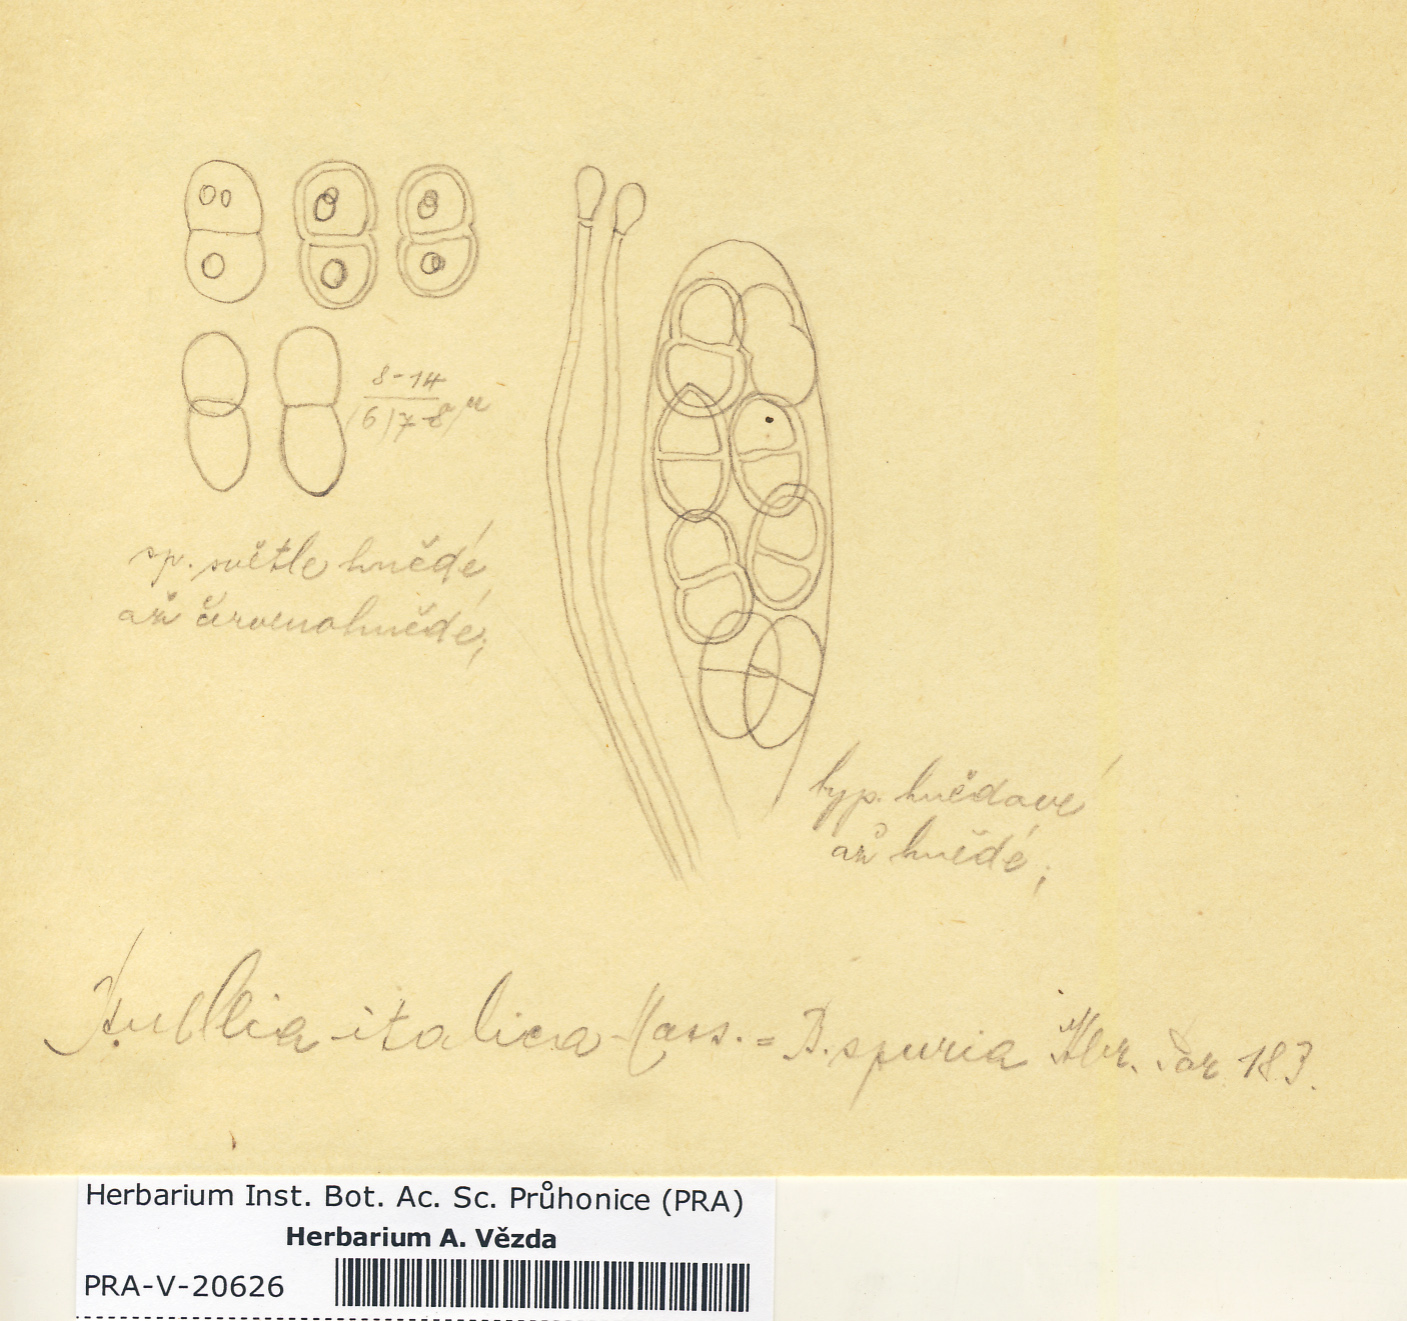 8-14
/6/7-8/µ
sp. světle hnědé
až červenohnědé;
hyp. hnědavé
až hnědé;
italica Mass. = B. spuria Hbr. 183.
Herbarium Inst. Bot. Ac. Sc. Průhonice (PRA)
Herbarium A. Vězda
PRA-V-20626